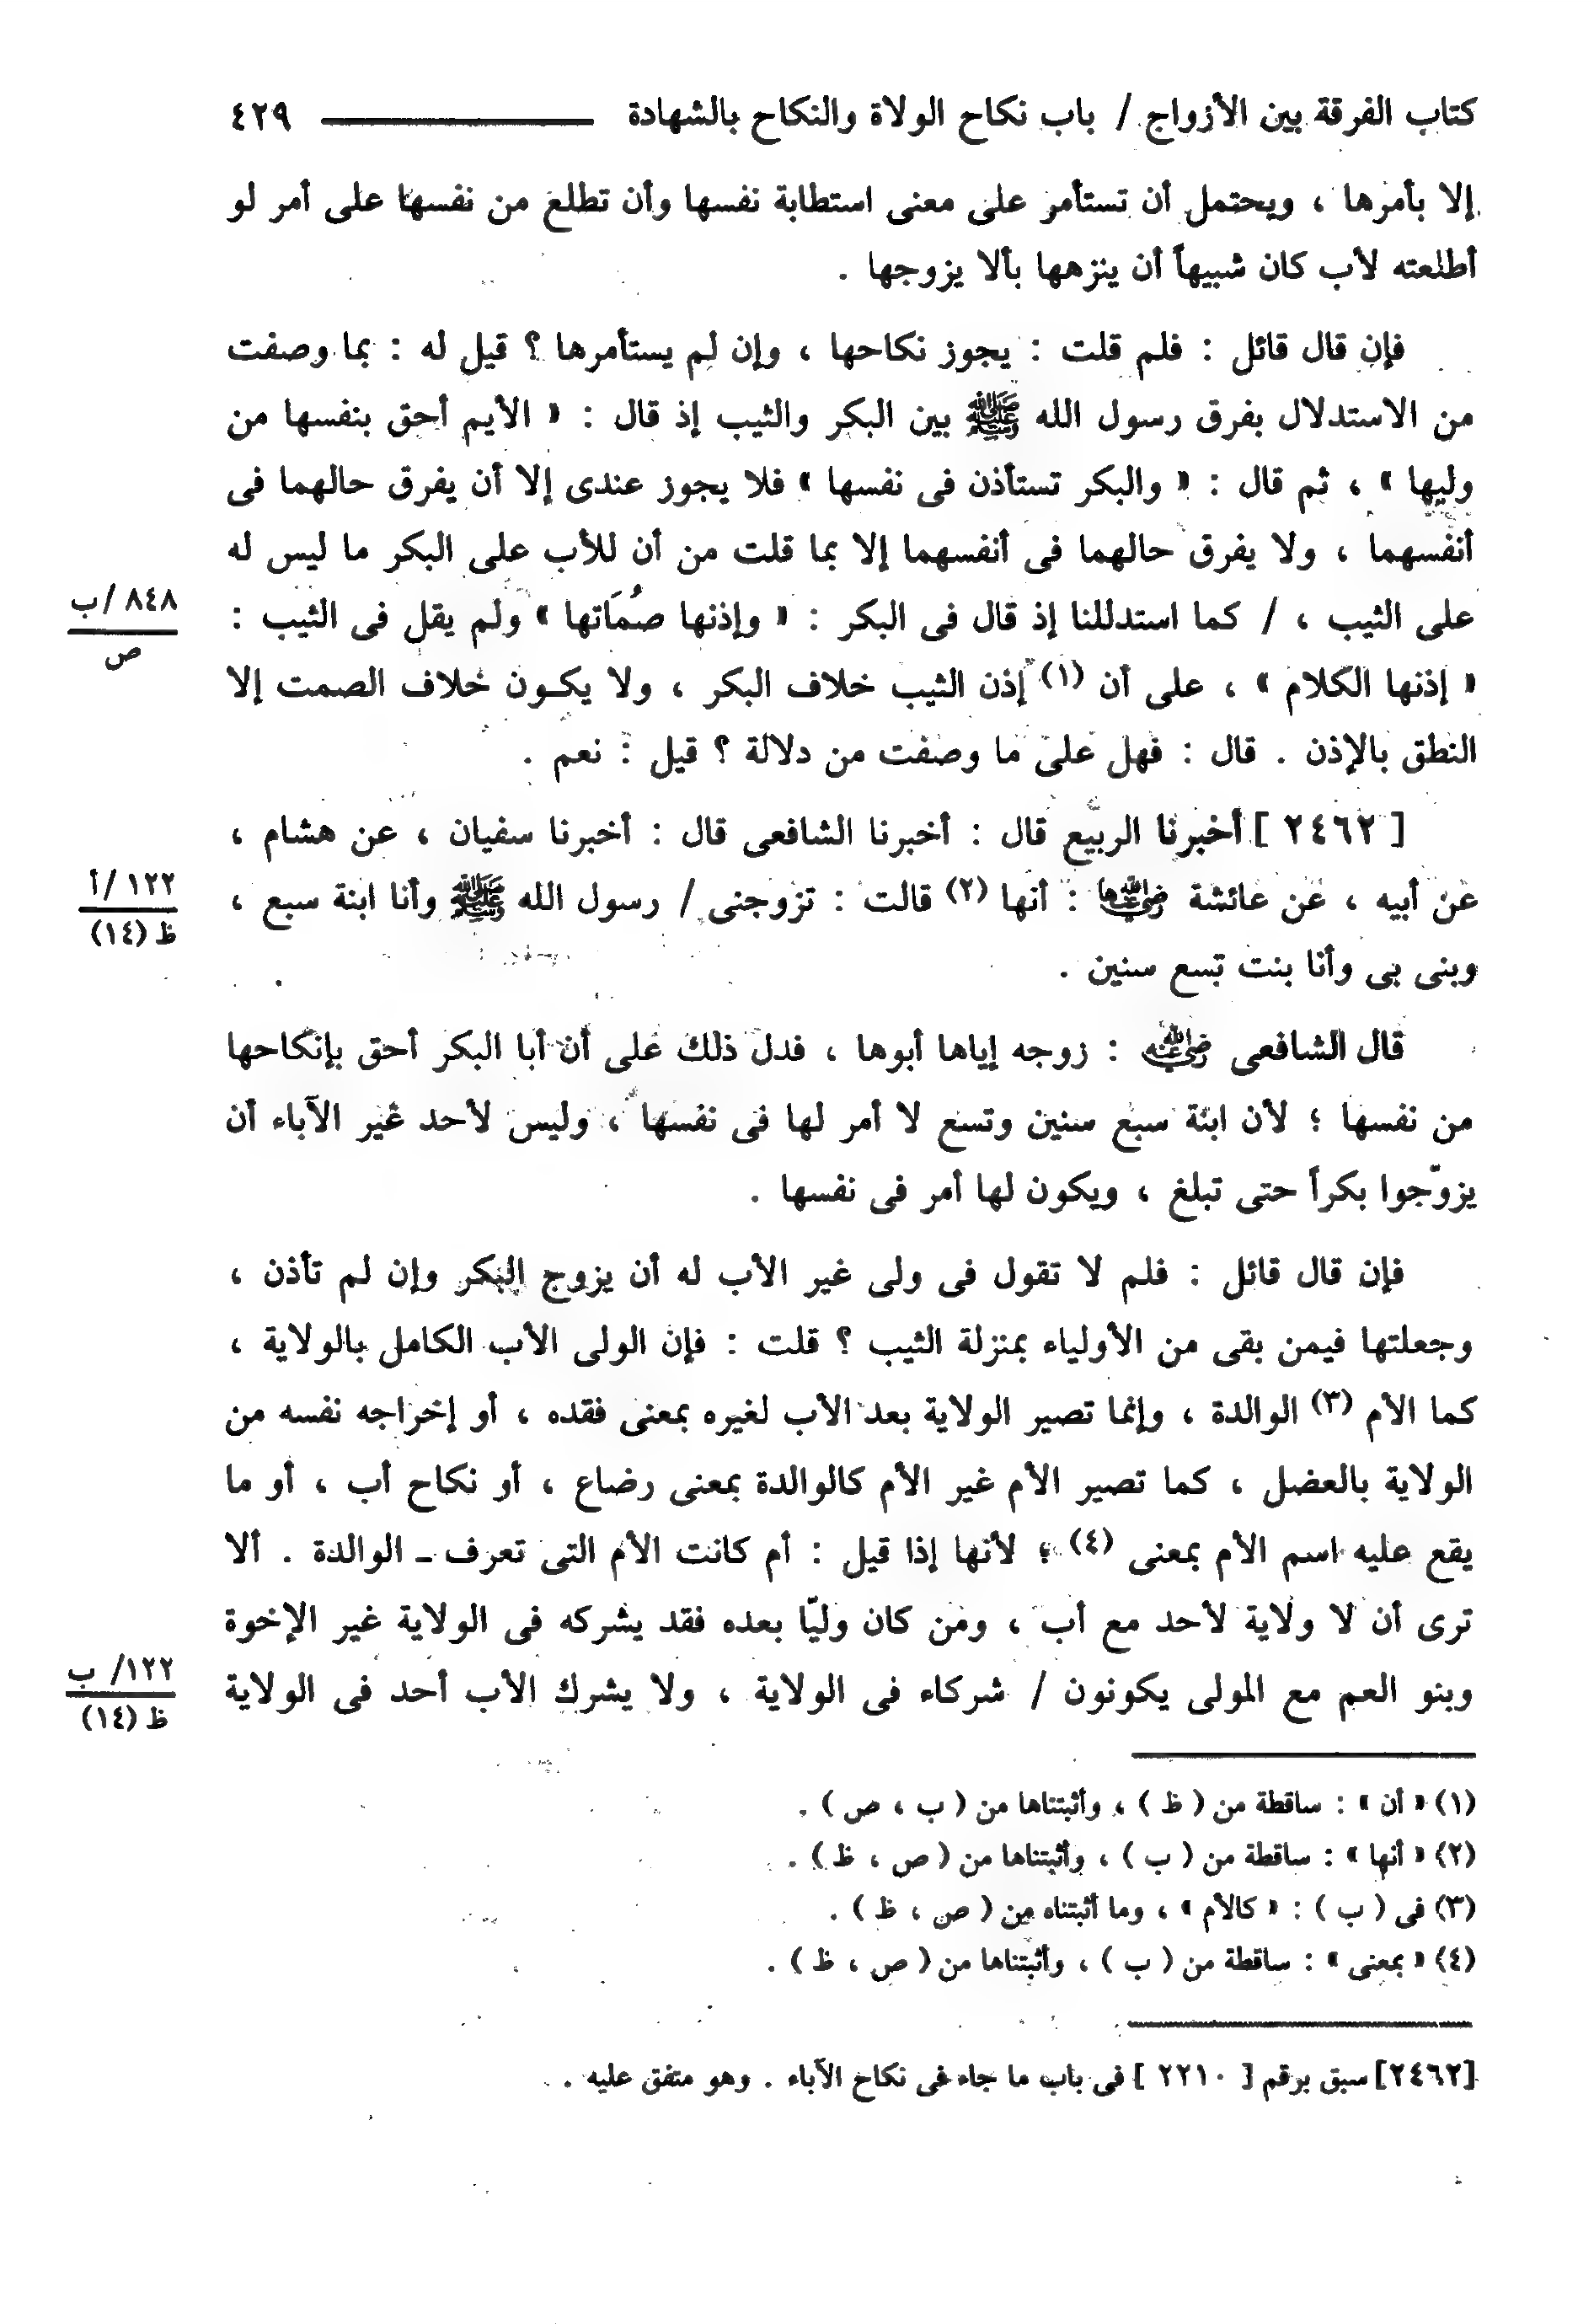 كتاب الفرقة بين الأزواج / باب نكاح الولاة والنكاح بالشهادة ٤٢٩
إلا بأمرها ، ويحتمل أن تستأمر على معنى استطابة نفسها وأن تطلع من نفسها على أمر لو
أطلعته لأب كان شبيهاً أن ينزهها بألا يزوجها .
فإن قال قائل : فلم قلت : يجوز نكاحها ، وإن لم يستأمرها ؟ قيل له : بما وصفت
من الاستدلال بفرق رسول الله ﷺ بين البكر والثيب إذ قال : « الأيم أحق بنفسها من
وليها » ، ثم قال : « والبكر تستأذن فى نفسها » فلا يجوز عندى إلا أن يفرق حالهما فى
أنفسهما ، ولا يفرق حالهما فى أنفسهما إلا بما قلت من أن للأب على البكر ما ليس له
على الثيب ، / كما استدللنا إذ قال فى البكر : « وإذنها صُمَاتها » ولم يقل فى الثيب :
٨٤٨ /ب
ص
« إذنها الكلام » ، على أن (١) إذن الثيب خلاف البكر ، ولا يكـون خلاف الصمت إلا
النطق بالإذن . قال : فهل على ما وصفت من دلالة ؟ قيل : نعم .
[ ٢٤٦٢ ] أخبرنا الربيع قال : أخبرنا الشافعى قال : أخبرنا سفيان ، عن هشام ،
عن أبيه ، عن عائشة رضي الله عنها : أنها (٢) قالت : تزوجنى / رسول الله ﷺ وأنا ابنة سبع ،
١٢٢ /أ
ظ (١٤)
وبنى بى وأنا بنت تسع سنين .
قال الشافعى رضي الله عنه : زوجه إياها أبوها ، فدل ذلك على أن أبا البكر أحق بإنكاحها
من نفسها ؛ لأن ابنة سبع سنين وتسع لا أمر لها فى نفسها ، وليس لأحد غير الآباء أن
يزوّجوا بكراً حتى تبلغ ، ويكون لها أمر فى نفسها .
فإن قال قائل : فلم لا تقول فى ولى غير الأب له أن يزوج البكر وإن لم تأذن ،
وجعلتها فيمن بقى من الأولياء بمنزلة الثيب ؟ قلت : فإن الولى الأب الكامل بالولاية ،
كما الأم (٣) الوالدة ، وإنما تصير الولاية بعد الأب لغيره بمعنى فقده ، أو إخراجه نفسه من
الولاية بالعضل ، كما تصير الأم غير الأم كالوالدة بمعنى رضاع ، أو نكاح أب ، أو ما
يقع عليه اسم الأم بمعنى (٤) ؛ لأنها إذا قيل : أم كانت الأم التى تعرف ـ الوالدة . ألا
ترى أن لا ولاية لأحد مع أب ، ومن كان وليّا بعده فقد يشركه فى الولاية غير الإخوة
وبنو العم مع المولى يكونون / شركاء فى الولاية ، ولا يشرك الأب أحد فى الولاية
١٢٢/ ب
ظ (١٤)
(١) « أن » : ساقطة من ( ظ ) ، وأثبتناها من ( ب ، ص ) .
(٢) « أنها » : ساقطة من ( ب ) ، وأثبتناها من ( ص ، ظ ) .
(٣) فى ( ب ) : « كالأم » ، وما أثبتناه من ( ص ، ظ ) .
(٤) « بمعنى » : ساقطة من ( ب ) ، وأثبتناها من ( ص ، ظ ) .
[٢٤٦٢] سبق برقم [ ٢٢١٠ ] فى باب ما جاء فى نكاح الآباء . وهو متفق عليه .